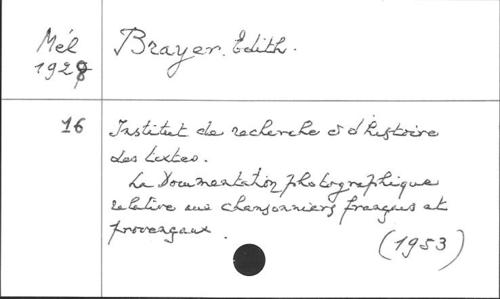 Mél Brayer. Edith.
1928
16 Institut de recherche & d'histoire
des textes.
La Documentation photographique
relative aux chansonniers français et
provençaux.
(1953)